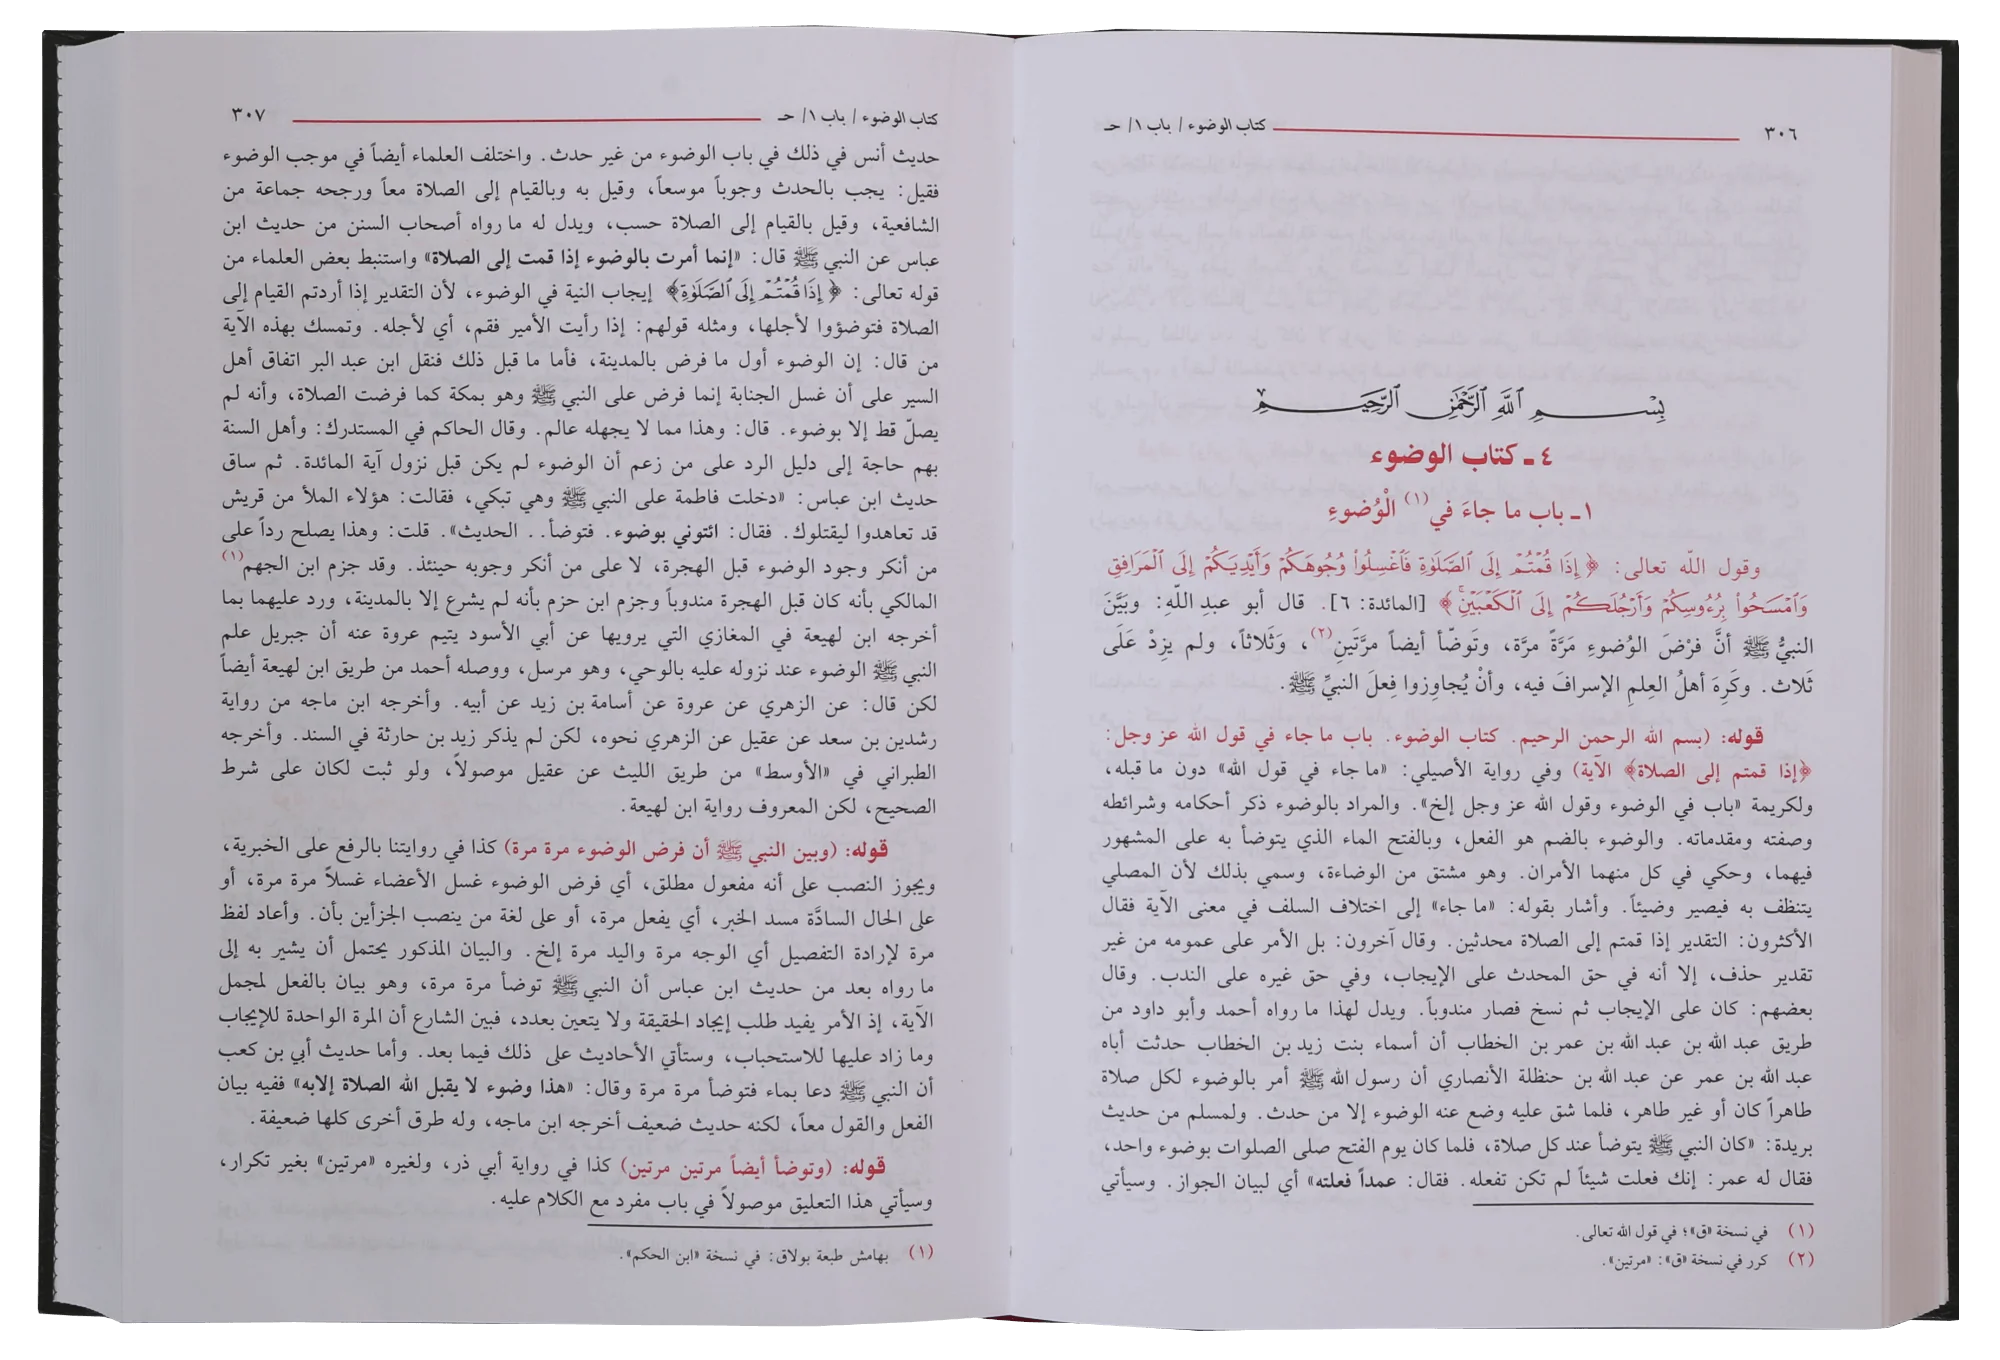 ٣٠٦ كتاب الوضوء / باب ١/ حـ
بِسْمِ اللَّهِ الرَّحْمَٰنِ الرَّحِيمِ
٤ ـ كتاب الوضوء
١ ـ باب ما جاءَ في(١) الْوُضوءِ
وقول اللّه تعالى: ﴿إِذَا قُمْتُمْ إِلَى الصَّلَوٰةِ فَاغْسِلُوا وُجُوهَكُمْ وَأَيْدِيَكُمْ إِلَى الْمَرَافِقِ
وَامْسَحُوا بِرُءُوسِكُمْ وَأَرْجُلَكُمْ إِلَى الْكَعْبَيْنِ﴾ [المائدة: ٦]. قال أبو عبدِ اللّهِ: وبَيَّنَ
النبيُّ ﷺ أنَّ فرْضَ الوُضوءِ مَرَّةً مرَّة، وتَوضّأ أيضاً مرَّتَينِ(٢)، وَثَلاثاً، ولم يزِدْ عَلَى
ثَلاث. وكَرِهَ أهلُ العِلمِ الإسرافَ فيه، وأنْ يُجاوِزوا فِعلَ النبيِّ ﷺ.
قوله: (بسم الله الرحمن الرحيم. كتاب الوضوء. باب ما جاء في قول الله عز وجل:
﴿إذا قمتم إلى الصلاة﴾ الآية) وفي رواية الأصيلي: «ما جاء في قول الله» دون ما قبله،
ولكريمة «باب في الوضوء وقول الله عز وجل إلخ». والمراد بالوضوء ذكر أحكامه وشرائطه
وصفته ومقدماته. والوضوء بالضم هو الفعل، وبالفتح الماء الذي يتوضأ به على المشهور
فيهما، وحكي في كل منهما الأمران. وهو مشتق من الوضاءة، وسمي بذلك لأن المصلي
يتنظف به فيصير وضيئاً. وأشار بقوله: «ما جاء» إلى اختلاف السلف في معنى الآية فقال
الأكثرون: التقدير إذا قمتم إلى الصلاة محدثين. وقال آخرون: بل الأمر على عمومه من غير
تقدير حذف، إلا أنه في حق المحدث على الإيجاب، وفي حق غيره على الندب. وقال
بعضهم: كان على الإيجاب ثم نسخ فصار مندوباً. ويدل لهذا ما رواه أحمد وأبو داود من
طريق عبد الله بن عبد الله بن عمر بن الخطاب أن أسماء بنت زيد بن الخطاب حدثت أباه
عبد الله بن عمر عن عبد الله بن حنظلة الأنصاري أن رسول الله ﷺ أمر بالوضوء لكل صلاة
طاهراً كان أو غير طاهر، فلما شق عليه وضع عنه الوضوء إلا من حدث. ولمسلم من حديث
بريدة: «كان النبي ﷺ يتوضأ عند كل صلاة، فلما كان يوم الفتح صلى الصلوات بوضوء واحد،
فقال له عمر: إنك فعلت شيئاً لم تكن تفعله. فقال: عمداً فعلته» أي لبيان الجواز. وسيأتي
(١) في نسخة «ق»؛ في قول الله تعالى.
(٢) كرر في نسخة «ق»: «مرتين».
كتاب الوضوء / باب ١/ حـ ٣٠٧
حديث أنس في ذلك في باب الوضوء من غير حدث. واختلف العلماء أيضاً في موجب الوضوء
فقيل: يجب بالحدث وجوباً موسعاً، وقيل به وبالقيام إلى الصلاة معاً ورجحه جماعة من
الشافعية، وقيل بالقيام إلى الصلاة حسب، ويدل له ما رواه أصحاب السنن من حديث ابن
عباس عن النبي ﷺ قال: «إنما أمرت بالوضوء إذا قمت إلى الصلاة» واستنبط بعض العلماء من
قوله تعالى: ﴿إِذَا قُمْتُمْ إِلَى الصَّلَوٰةِ﴾ إيجاب النية في الوضوء، لأن التقدير إذا أردتم القيام إلى
الصلاة فتوضؤوا لأجلها، ومثله قولهم: إذا رأيت الأمير فقم، أي لأجله. وتمسك بهذه الآية
من قال: إن الوضوء أول ما فرض بالمدينة، فأما ما قبل ذلك فنقل ابن عبد البر اتفاق أهل
السير على أن غسل الجنابة إنما فرض على النبي ﷺ وهو بمكة كما فرضت الصلاة، وأنه لم
يصلّ قط إلا بوضوء. قال: وهذا مما لا يجهله عالم. وقال الحاكم في المستدرك: وأهل السنة
بهم حاجة إلى دليل الرد على من زعم أن الوضوء لم يكن قبل نزول آية المائدة. ثم ساق
حديث ابن عباس: «دخلت فاطمة على النبي ﷺ وهي تبكي، فقالت: هؤلاء الملأ من قريش
قد تعاهدوا ليقتلوك. فقال: ائتوني بوضوء. فتوضأ.. الحديث». قلت: وهذا يصلح رداً على
من أنكر وجود الوضوء قبل الهجرة، لا على من أنكر وجوبه حينئذ. وقد جزم ابن الجهم(١)
المالكي بأنه كان قبل الهجرة مندوباً وجزم ابن حزم بأنه لم يشرع إلا بالمدينة، ورد عليهما بما
أخرجه ابن لهيعة في المغازي التي يرويها عن أبي الأسود يتيم عروة عنه أن جبريل علم
النبي ﷺ الوضوء عند نزوله عليه بالوحي، وهو مرسل، ووصله أحمد من طريق ابن لهيعة أيضاً
لكن قال: عن الزهري عن عروة عن أسامة بن زيد عن أبيه. وأخرجه ابن ماجه من رواية
رشدين بن سعد عن عقيل عن الزهري نحوه، لكن لم يذكر زيد بن حارثة في السند. وأخرجه
الطبراني في «الأوسط» من طريق الليث عن عقيل موصولاً، ولو ثبت لكان على شرط
الصحيح، لكن المعروف رواية ابن لهيعة.
قوله: (وبين النبي ﷺ أن فرض الوضوء مرة مرة) كذا في روايتنا بالرفع على الخبرية،
ويجوز النصب على أنه مفعول مطلق، أي فرض الوضوء غسل الأعضاء غسلاً مرة مرة، أو
على الحال السادَّة مسد الخبر، أي يفعل مرة، أو على لغة من ينصب الجزأين بأن. وأعاد لفظ
مرة لإرادة التفصيل أي الوجه مرة واليد مرة إلخ. والبيان المذكور يحتمل أن يشير به إلى
ما رواه بعد من حديث ابن عباس أن النبي ﷺ توضأ مرة مرة، وهو بيان بالفعل لمجمل
الآية، إذ الأمر يفيد طلب إيجاد الحقيقة ولا يتعين بعدد، فبين الشارع أن المرة الواحدة للإيجاب
وما زاد عليها للاستحباب، وستأتي الأحاديث على ذلك فيما بعد. وأما حديث أبي بن كعب
أن النبي ﷺ دعا بماء فتوضأ مرة مرة وقال: «هذا وضوء لا يقبل الله الصلاة إلا به» ففيه بيان
الفعل والقول معاً، لكنه حديث ضعيف أخرجه ابن ماجه، وله طرق أخرى كلها ضعيفة.
قوله: (وتوضأ أيضاً مرتين مرتين) كذا في رواية أبي ذر، ولغيره «مرتين» بغير تكرار،
وسيأتي هذا التعليق موصولاً في باب مفرد مع الكلام عليه.
(١) بهامش طبعة بولاق: في نسخة «ابن الحكم».